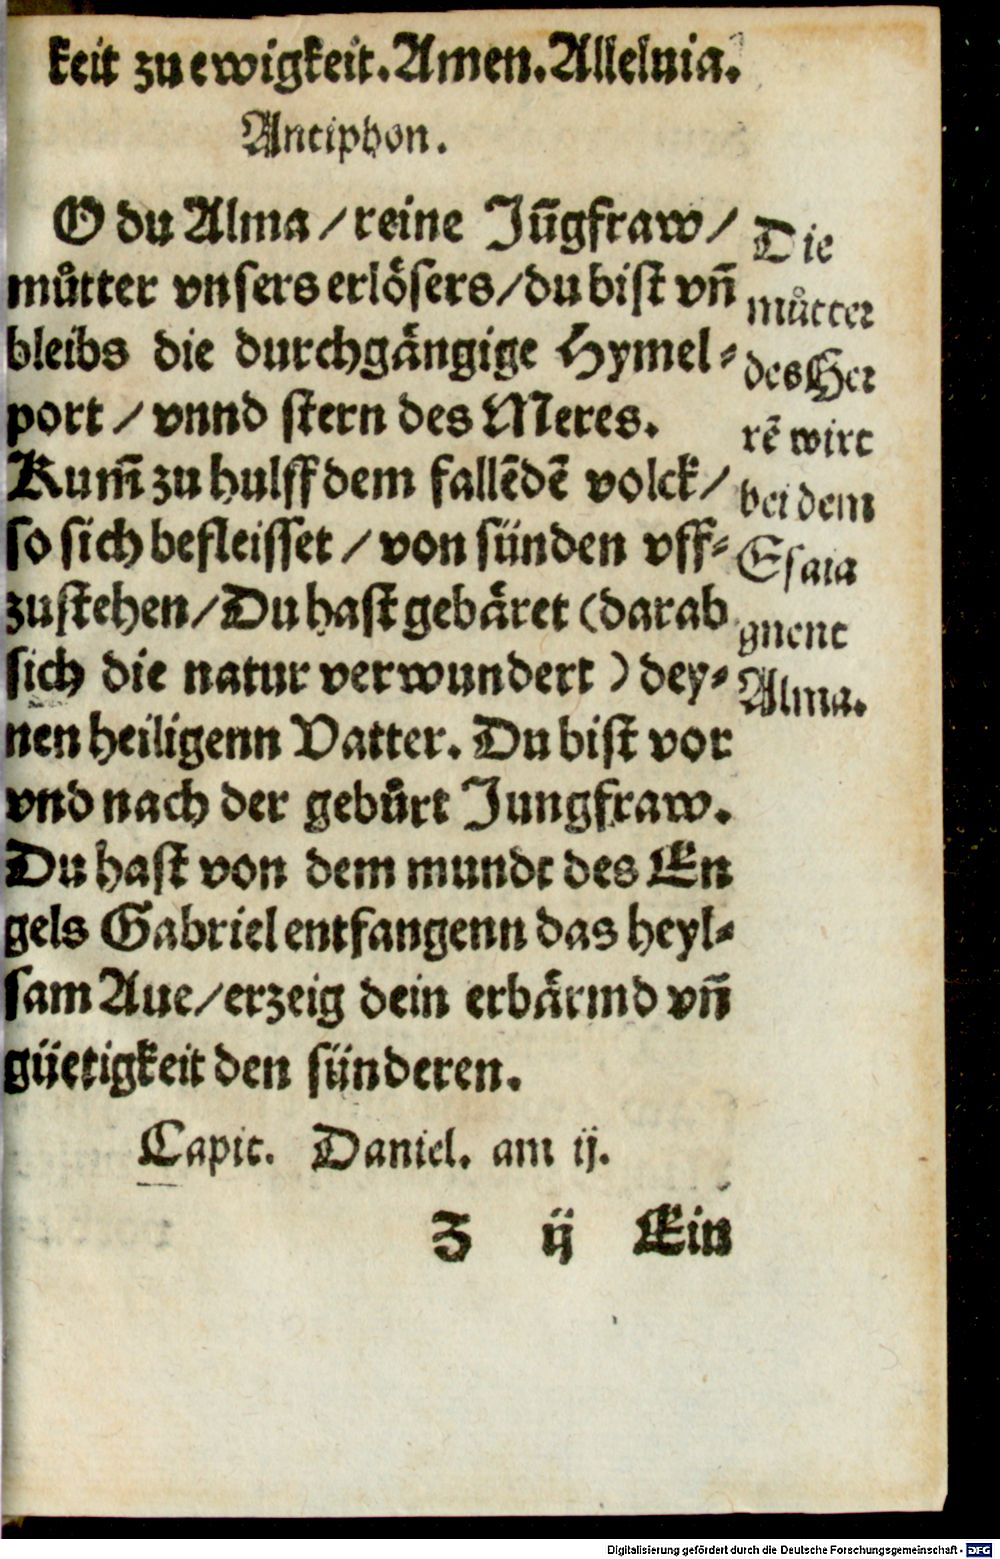 keit zu ewigkeit. Amen. Alleluia.
Antiphon.
O du Alma / reine Jūgfraw /
můtter vnsers erlösers / du bist vn̄
bleibs die durchgängige Hymel-
port / vnnd stern des Meres.
Kum̄ zu hulff dem fallēdē volck /
so sich befleisset / von sünden vff-
zustehen / Du hast gebäret (darab
sich die natur verwundert) dey-
nen heiligenn Vatter. Du bist vor
vnd nach der gebůrt Jungfraw.
Du hast von dem mundt des En
gels Gabriel entfangenn das heyl-
sam Aue / erzeig dein erbärmd vn̄
güetigkeit den sünderen.
Die
můtter
des Her
rē wirt
bei dem
Esaia
gnent
Alma.
Capit. Daniel. am ij.
Z ij Ein
Digitalisierung gefördert durch die Deutsche Forschungsgemeinschaft - DFG